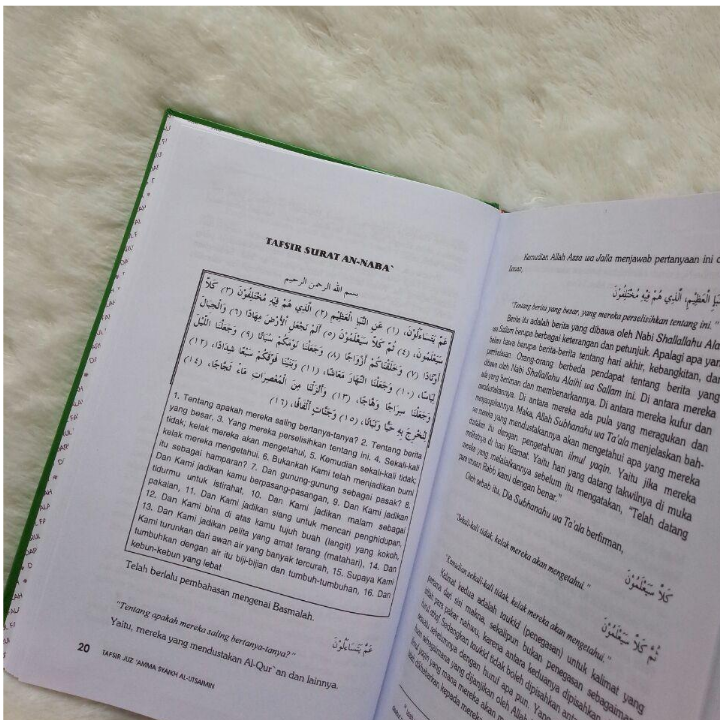 TAFSIR SURAT AN-NABA`
بسم الله الرحمن الرحيم
عَمَّ يَتَسَاءَلُوْنَ، (١) عَنِ النَّبَإِ الْعَظِيْمِ (٢) الَّذِي هُمْ فِيْهِ مُخْتَلِفُوْنَ (٣) كَلاَّ
سَيَعْلَمُوْنَ، (٤) ثُمَّ كَلاَّ سَيَعْلَمُوْنَ (٥) أَلَمْ نَجْعَلِ الْأَرْضَ مِهَادًا (٦) وَالْجِبَالَ
أَوْتَادًا (٧) وَخَلَقْنَاكُمْ أَزْوَاجًا (٨) وَجَعَلْنَا نَوْمَكُمْ سُبَاتًا (٩) وَجَعَلْنَا اللَّيْلَ
لِبَاسًا (١٠) وَجَعَلْنَا النَّهَارَ مَعَاشًا، (١١) وَبَنَيْنَا فَوْقَكُمْ سَبْعًا شِدَادًا، (١٢)
وَجَعَلْنَا سِرَاجًا وَهَّاجًا، (١٣) وَأَنْزَلْنَا مِنَ الْمُعْصِرَاتِ مَاءً ثَجَّاجًا، (١٤)
لِنُخْرِجَ بِهِ حَبًّا وَنَبَاتًا، (١٥) وَجَنَّاتٍ أَلْفَافًا، (١٦)
1. Tentang apakah mereka saling bertanya-tanya? 2. Tentang berita
yang besar, 3. Yang mereka perselisihkan tentang ini. 4. Sekali-kali
tidak; kelak mereka akan mengetahui, 5. Kemudian sekali-kali tidak;
kelak mereka mengetahui. 6. Bukankah Kami telah menjadikan bumi
itu sebagai hamparan? 7. Dan gunung-gunung sebagai pasak? 8.
Dan Kami jadikan kamu berpasang-pasangan, 9. Dan Kami jadikan
tidurmu untuk istirahat, 10. Dan Kami jadikan malam sebagai
pakaian, 11. Dan Kami jadikan siang untuk mencari penghidupan,
12. Dan Kami bina di atas kamu tujuh buah (langit) yang kokoh,
13. Dan Kami jadikan pelita yang amat terang (matahari), 14. Dan
Kami turunkan dari awan air yang banyak tercurah, 15. Supaya Kami
tumbuhkan dengan air itu biji-bijian dan tumbuh-tumbuhan, 16. Dan
kebun-kebun yang lebat
Telah berlalu pembahasan mengenai Basmalah.
عَمَّ يَتَسَاءَلُوْنَ
"Tentang apakah mereka saling bertanya-tanya?"
Yaitu, mereka yang mendustakan Al-Qur`an dan lainnya.
20 TAFSIR JUZ 'AMMA SYAIKH AL-UTSAIMIN
Kemudian Allah Azza wa Jalla menjawab pertanyaan ini
الْعَظِيْمِ، الَّذِي هُمْ فِيْهِ مُخْتَلِفُوْنَ
"Tentang berita yang besar, yang mereka perselisihkan tentang ini.
Berita itu adalah berita yang dibawa oleh Nabi Shallallahu
wa Sallam berupa berbagai keterangan dan petunjuk. Apalagi apa yang
beliau bawa berupa berita-berita tentang hari akhir, kebangkitan, dan
pembalasan. Orang-orang berbeda pendapat tentang berita yang
dibawa oleh Nabi Shallallahu Alaihi wa Sallam ini. Di antara mereka
ada yang beriman dan membenarkannya. Di antara mereka kufur dan
mendustakannya. Di antara mereka ada pula yang meragukan dan
Maka, Allah Subhanahu wa Ta'ala menjelaskan bah-
wa mereka yang mendustakannya akan mengetahui apa yang mereka
dustakan itu dengan pengetahuan ilmul yaqin. Yaitu jika mereka
melihatnya di hari Kiamat. Yaitu hari yang datang takwilnya di muka
mereka yang melalaikannya sebelum itu mengatakan, "Telah datang
Rabb kami dengan benar."
Oleh sebab itu, Dia Subhanahu wa Ta'ala berfirman,
كَلاَّ سَيَعْلَمُوْنَ
"Sekali-kali tidak, kelak mereka akan mengetahui."
ثُمَّ كَلاَّ سَيَعْلَمُوْنَ
"Kemudian sekali-kali tidak, kelak mereka akan mengetahui."
Kalimat kedua adalah taukid (penegasan) untuk kalimat yang